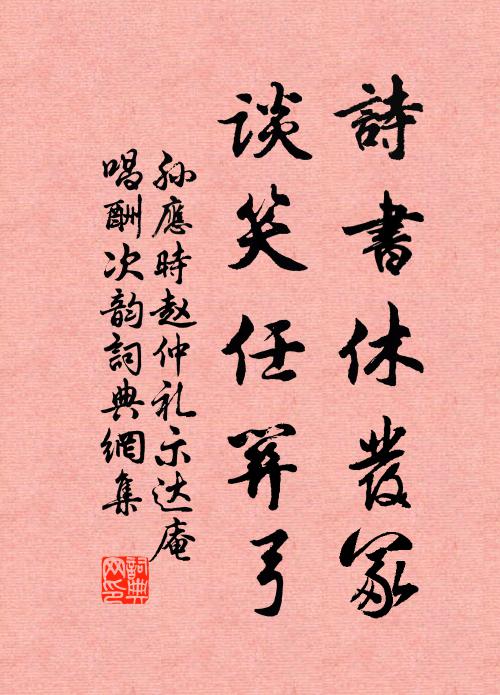 詩書休發冢
谈笑任關弓
孙應時赵仲礼示达庵
唱酬次韵詞典網集
詞典
网印